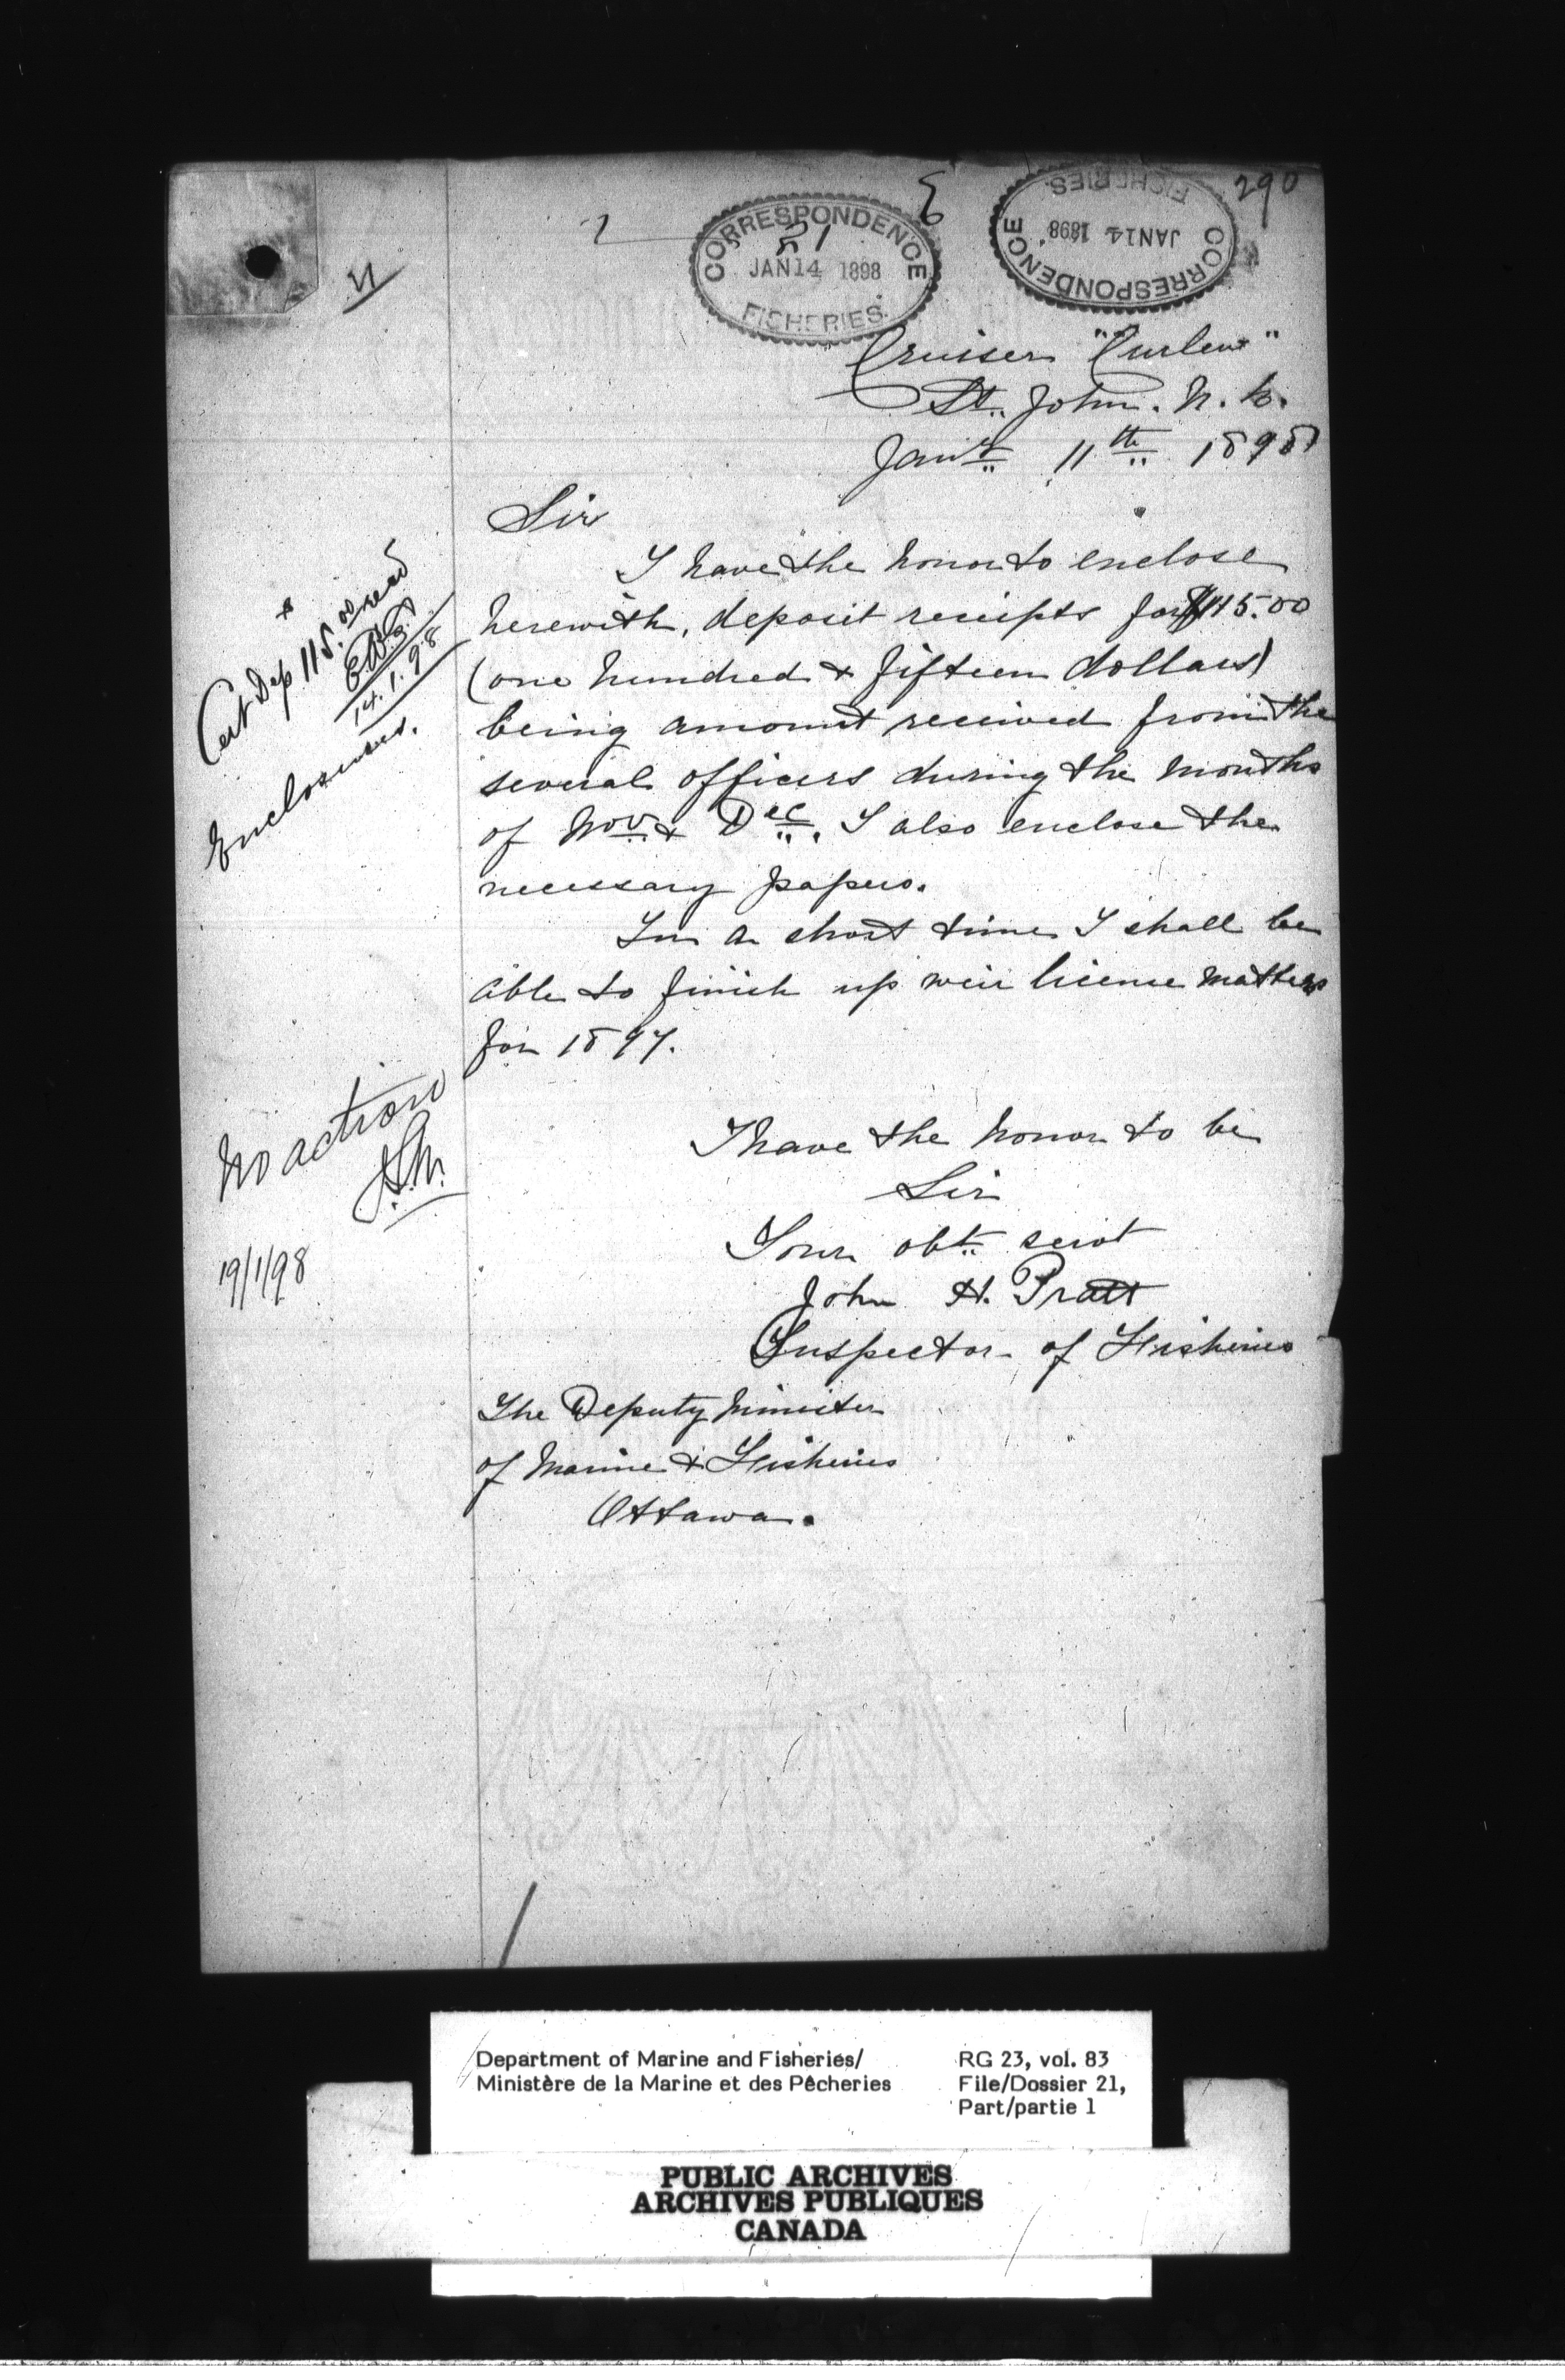 290
21
CORRESPONDENCE
JAN 14 1898
FISHERIES.
CORRESPONDENCE
JAN 14 1898
FISHERIES.
Cruiser "Curlew"
St. John. N. B.
Jany 11th 1898
Sir
I have the honor to enclose
herewith, deposit receipts for $115.00
(one hundred & fifteen dollars)
being amount received from the
several officers during the months
of Nov & Dec. I also enclose the
necessary papers.
In a short time I shall be
able to finish up weir license matters
for 1897.
I have the honor to be
Sir
Your obt servt
John H. Pratt
Inspector of Fisheries
The Deputy Minister
of Marine & Fisheries
Ottawa.
Cert Dep 115.00 recd
14.1.98
Enclosures.
No action
19/1/98
Department of Marine and Fisheries/
Ministère de la Marine et des Pêcheries
RG 23, vol. 83
File/Dossier 21,
Part/partie 1
PUBLIC ARCHIVES
ARCHIVES PUBLIQUES
CANADA